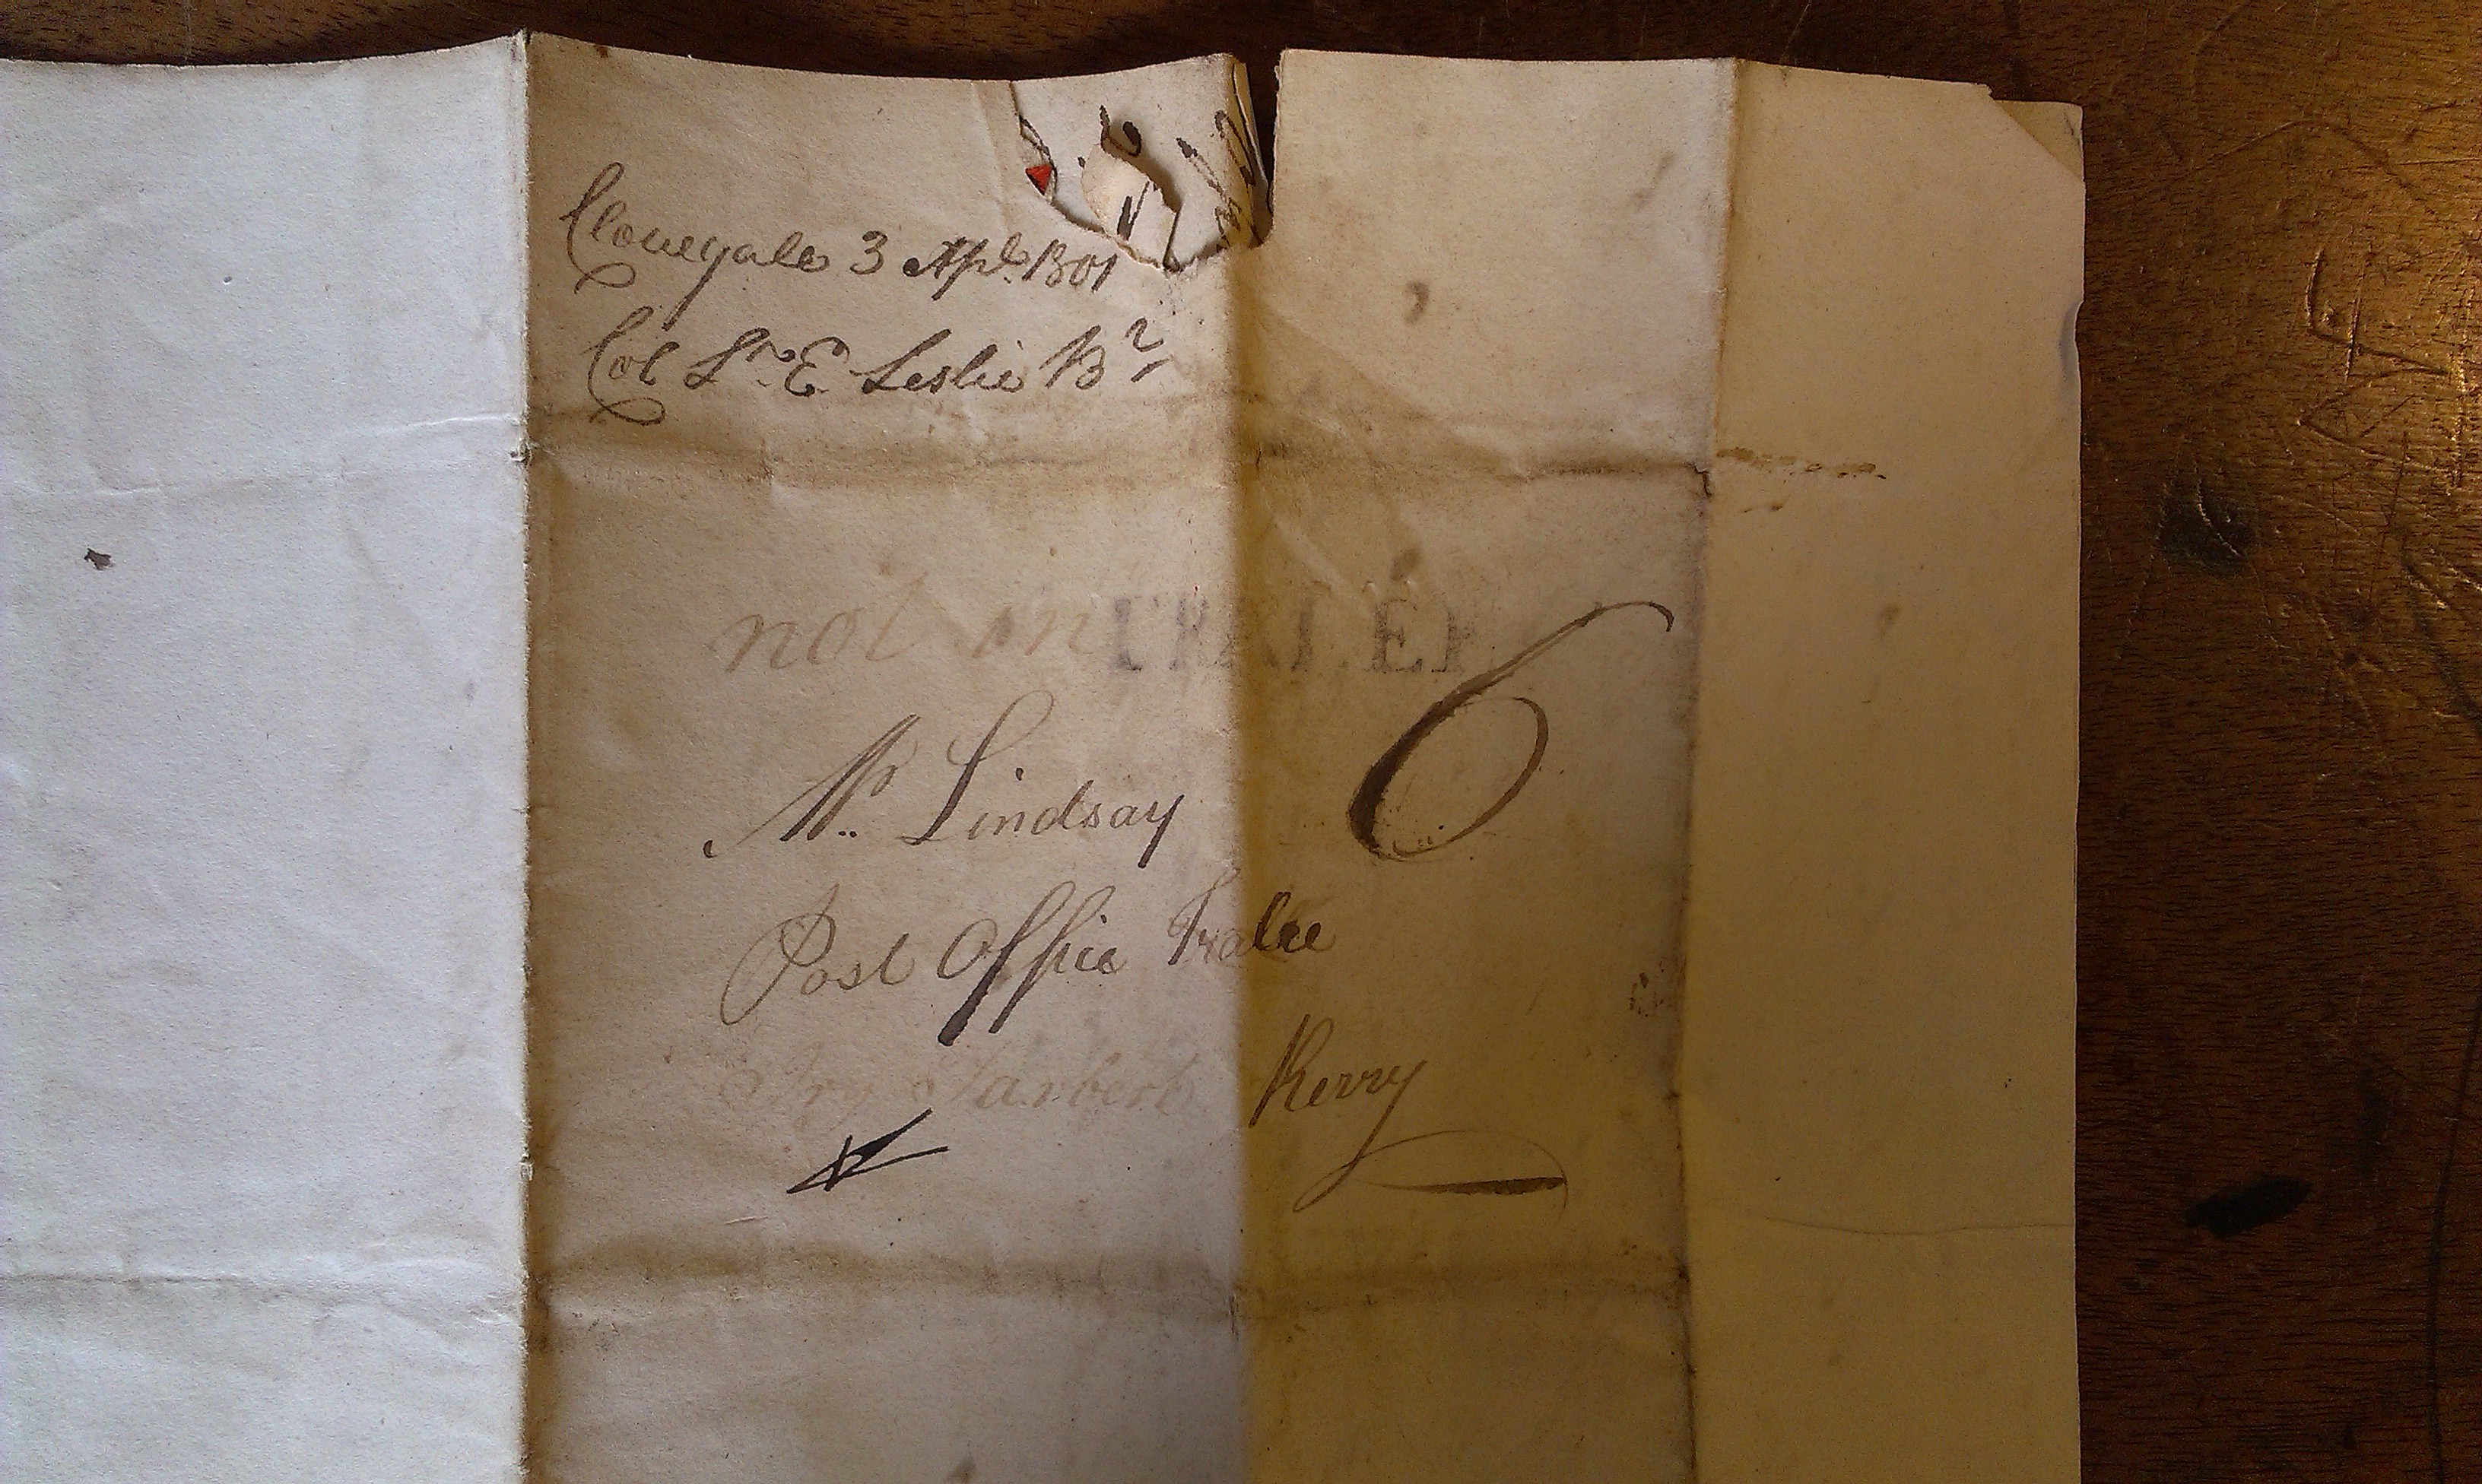 Clonegale 3 Apl. 1801
Col Sr. E. Leslie Bt
not in TRALEE
Mr. Lindsay 6
Post Office Tralee
Try Tarbert Kerry